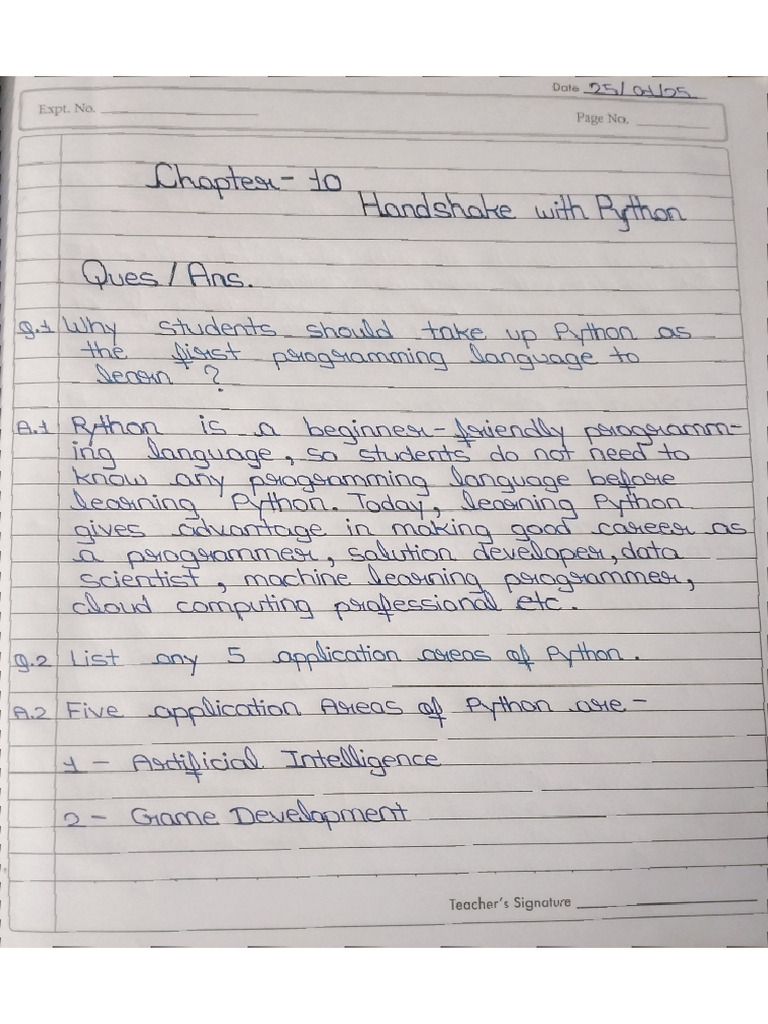 Date 25/01/25
Expt. No.
Page No.
Chapter- 10
Handshake with Python
Ques / Ans.
Q.1 Why students should take up Python as
the first programming language to
learn ?
A.1 Python is a beginner-friendly programm-
ing language, so students do not need to
know any programming language before
learning Python. Today, learning Python
gives advantage in making good career as
a programmer, solution developer, data
scientist, machine learning programmer,
cloud computing professional etc.
Q.2 List any 5 application areas of Python.
A.2 Five application Areas of Python are-
1 - Artificial Intelligence
2 - Game Development
Teacher's Signature